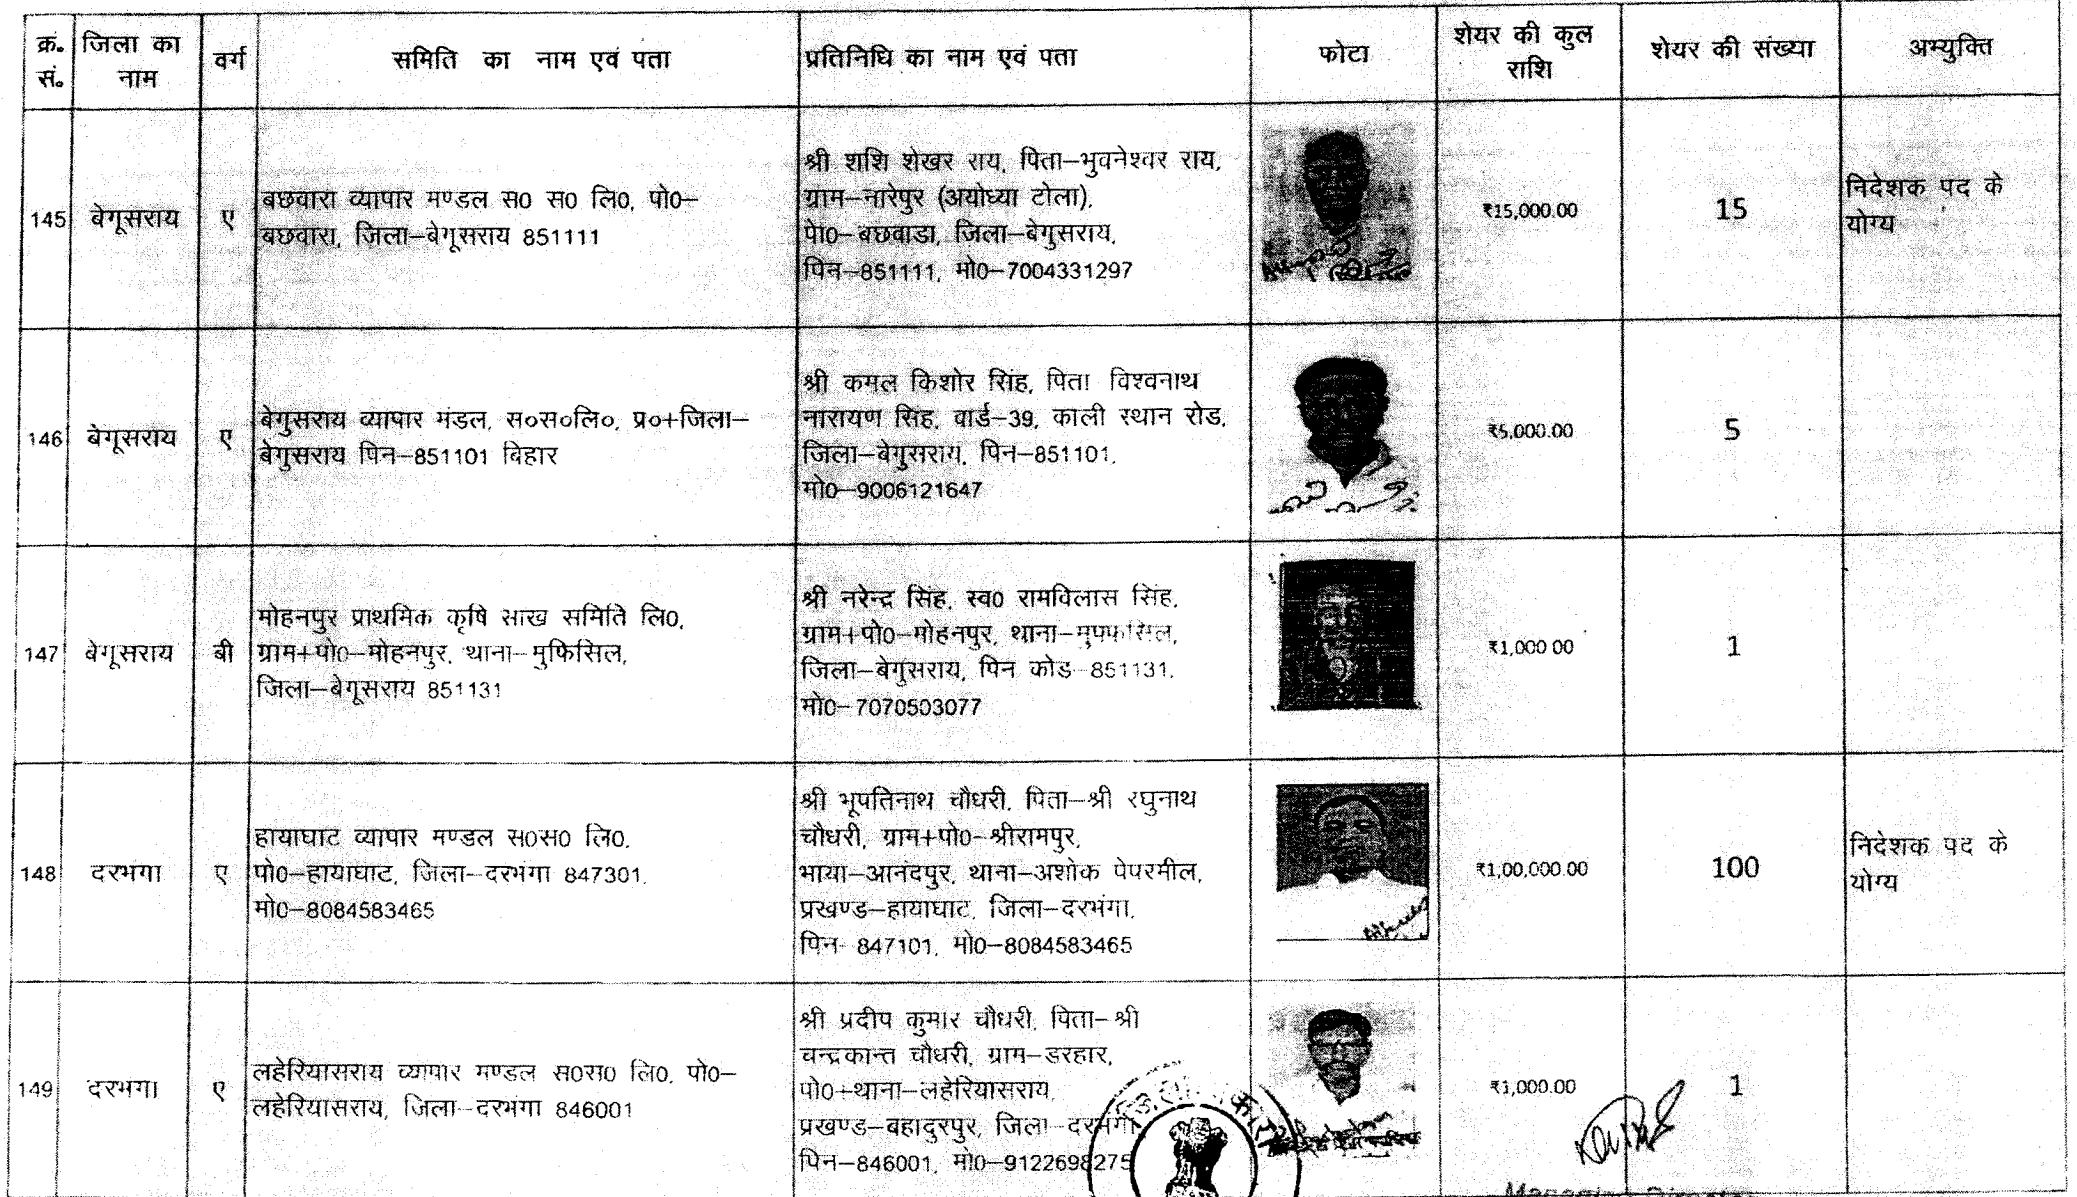 क्र. सं.
जिला का नाम
वर्ग
समिति का नाम एवं पता
प्रतिनिधि का नाम एवं पता
फोटो
शेयर की कुल राशि
शेयर की संख्या
अभ्युक्ति
145
बेगूसराय
ए
बछवारा व्यापार मण्डल स0 स0 लि0, पो0–
बछवारा, जिला–बेगूसराय 851111
श्री शशि शेखर राय, पिता–भुवनेश्वर राय,
ग्राम–नारेपुर (अयोध्या टोला),
पो0–बछवाडा, जिला–बेगुसराय,
पिन–851111, मो0–7004331297
₹15,000.00
15
निदेशक पद के
योग्य
146
बेगूसराय
ए
बेगुसराय व्यापार मंडल, स०स०लि०, प्र०+जिला–
बेगुसराय पिन–851101 बिहार
श्री कमल किशोर सिंह, पिता विश्वनाथ
नारायण सिंह, वार्ड–39, काली स्थान रोड,
जिला–बेगुसराय, पिन–851101,
मो0–9006121647
₹5,000.00
5
147
बेगूसराय
बी
मोहनपुर प्राथमिक कृषि साख समिति लि0,
ग्राम+पो0–मोहनपुर, थाना–मुफिसिल,
जिला–बेगूसराय 851131
श्री नरेन्द्र सिंह, स्व0 रामविलास सिंह,
ग्राम+पो0–मोहनपुर, थाना–मुफ्फसिल,
जिला–बेगुसराय, पिन कोड–851131,
मो0–7070503077
₹1,000.00
1
148
दरभंगा
ए
हायाघाट व्यापार मण्डल स0स0 लि0,
पो0–हायाघाट, जिला–दरभंगा 847301,
मो0–8084583465
श्री भूपतिनाथ चौधरी, पिता–श्री रघुनाथ
चौधरी, ग्राम+पो0–श्रीरामपुर,
भाया–आनंदपुर, थाना–अशोक पेपरमील,
प्रखण्ड–हायाघाट, जिला–दरभंगा,
पिन– 847101, मो0–8084583465
₹1,00,000.00
100
निदेशक पद के
योग्य
149
दरभंगा
ए
लहेरियासराय व्यापार मण्डल स0स0 लि0, पो0–
लहेरियासराय, जिला–दरभंगा 846001
श्री प्रदीप कुमार चौधरी, पिता–श्री
चन्द्रकान्त चौधरी, ग्राम–डरहार,
पो0+थाना–लहेरियासराय,
प्रखण्ड–बहादुरपुर, जिला–दरभंगा
पिन–846001, मो0–9122698275
₹1,000.00
1